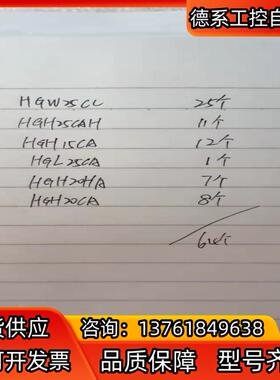 德系工控自
HGW25CC 25个
HGH25CAH 11个
HGH15CA 12个
HGL25CA 1个
HGH20HA 7个
HGH20CA 8个
64个
货供应 咨询：13761849638
可开发票 品质保障 型号齐